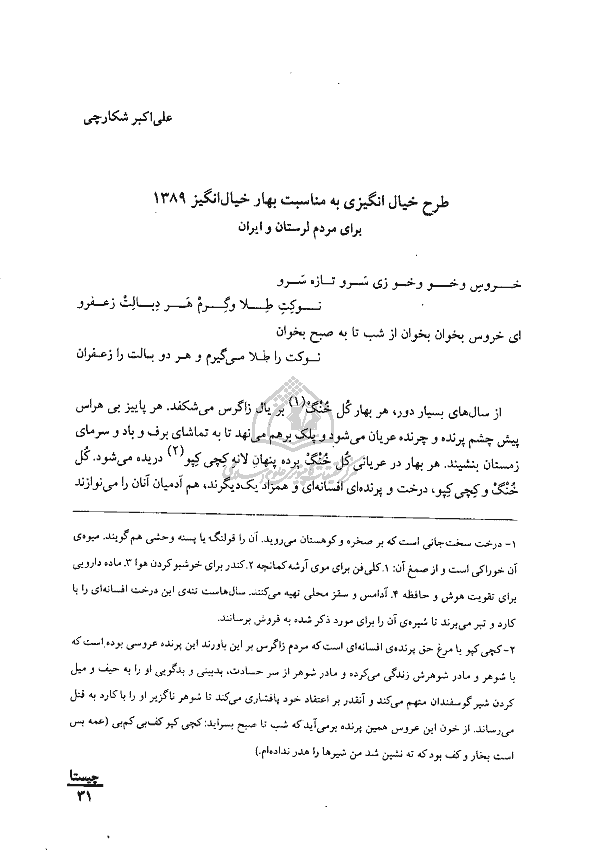 علی‌اکبر شکارچی
طرح خیال انگیزی به مناسبت بهار خیال‌انگیز ۱۳۸۹
برای مردم لرستان و ایران
خـروسِ وخـو وخـو زی سَـرو تـازه سَـرو
نـوکِتِ طِـلا وگِـرمْ هَـر دِبـالِتْ زعـفرو
ای خروس بخوان بخوان از شب تا به صبح بخوان
نـوکت را طلا مـی‌گیرم و هـر دو بـالت را زعـفران
از سال‌های بسیار دور، هر بهار گُل خُنْگْ(۱) بر یال زاگرس می‌شکفد. هر پاییز بی هراس
پیش چشم پرنده و چرنده عریان می‌شود و پلک برهم می‌نهد تا به تماشای برف و باد و سرمای
زمستان بنشیند. هر بهار در عریانی گُل خُنْگْ پرده پنهان لانه کِچی کپو(۲) دریده می‌شود. گُل
خُنْگْ و کِچی کپو، درخت و پرنده‌ای افسانه‌ای و همزاد یک‌دیگرند، هم آدمیان آنان را می‌نوازند
۱- درخت سخت‌جانی است که بر صخره و کوهستان می‌روید. آن را قولنگ یا پسته وحشی هم گویند. میوه‌ی
آن خوراکی است و از صمغ آن: ۱.کلی‌فن برای موی آرشه کمانچه ۲.کندر برای خوشبو کردن هوا ۳. ماده دارویی
برای تقویت هوش و حافظه ۴. آدامس و سقز محلی تهیه می‌کنند. سال‌هاست تنه‌ی این درخت افسانه‌ای را با
کارد و تبر می‌برند تا شیره‌ی آن را برای مورد ذکر شده به فروش برسانند.
۲- کچی کپو یا مرغ حق پرنده‌ی افسانه‌ای است که مردم زاگرس بر این باورند این پرنده عروسی بوده است که
با شوهر و مادر شوهرش زندگی می‌کرده و مادر شوهر از سر حسادت، بدبینی و بدگویی او را به حیف و میل
کردن شیر گوسفندان متهم می‌کند و آنقدر بر اعتقاد خود پافشاری می‌کند تا شوهر ناگزیر او را با کارد به قتل
می‌رساند. از خون این عروس همین پرنده برمی‌آید که شب تا صبح بسراید: کچی کپو کف‌بی کم‌بی (عمه بس
است بخار و کف بود که ته نشین شد من شیرها را هدر نداده‌ام.)
چیستا
۳۱